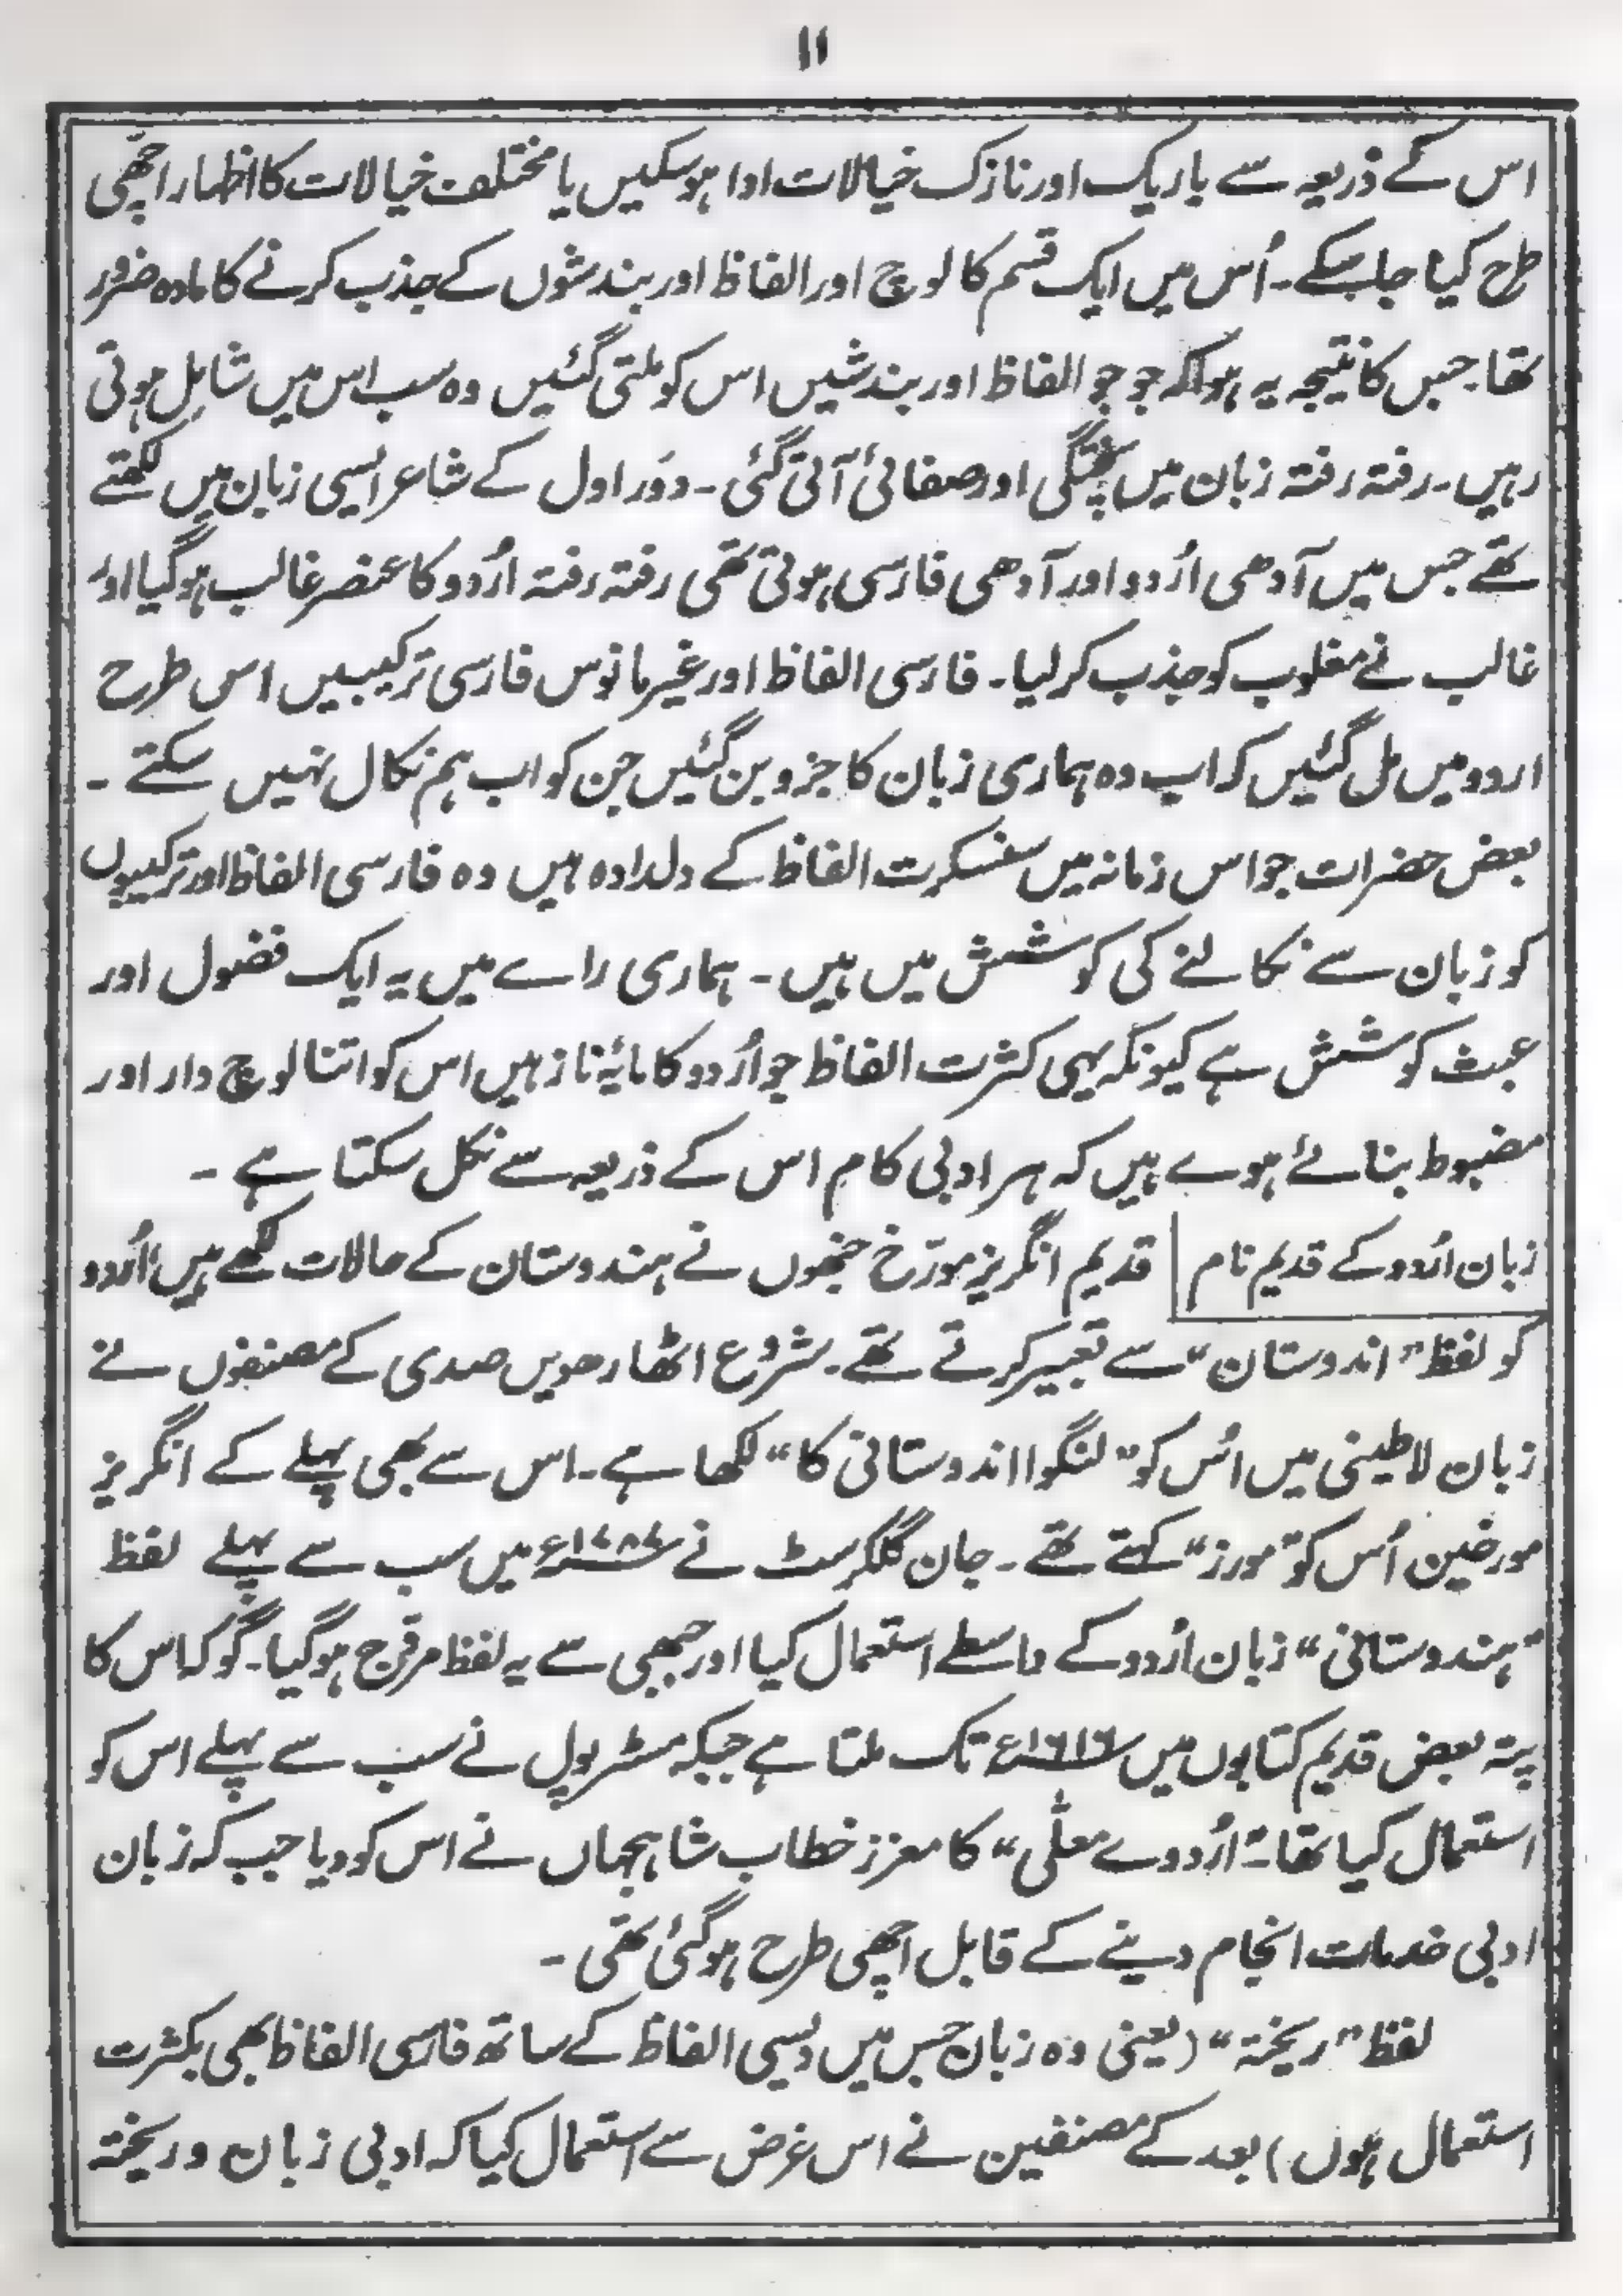 ۱۱
اس کے ذریعہ سے باریک اور نازک خیالات ادا ہوسکیں یا مختلف خیالات کا اظہار اچھّی
طرح کیا جاسکے۔ اُس میں ایک قسم کا لوچ اور الفاظ اور بندشوں کے جذب کرنے کا مادہ ضرور
تھا۔ جس کا نتیجہ یہ ہوا کہ جو جو الفاظ اور بندشیں اس کو ملتی گئیں وہ سب اس میں شامل ہوتی
رہیں۔ رفتہ رفتہ زبان میں پختگی اور صفائی آتی گئی۔ دَور اول کے شاعر ایسی زبان میں لکھتے
تھے جس میں آدھی اُردو اور آدھی فارسی ہوتی تھی رفتہ رفتہ اُردو کا عنصر غالب ہوگیا اور
غالب نے مغلوب کو جذب کرلیا۔ فارسی الفاظ اور غیر مانوس فارسی ترکیبیں اس طرح
اردو میں مل گئیں کہ اب وہ ہماری زبان کا جزو بن گئیں جن کو اب ہم نکال نہیں سکتے ۔
بعض حضرات جو اس زمانہ میں سنسکرت الفاظ کے دلدادہ ہیں وہ فارسی الفاظ اور ترکیبوں
کو زبان سے نکالنے کی کوشش میں ہیں۔ ہماری راے میں یہ ایک فضول اور
عبث کوشش ہے کیونکہ یہی کثرت الفاظ جو اُردو کا مایۂ ناز ہیں اس کو اتنا لوچ دار اور
مضبوط بنائے ہوے ہیں کہ ہر ادبی کام اس کے ذریعہ سے نکل سکتا ہے ۔
زبان اُردو کے قدیم نام | قدیم انگریز مورّخ جنھوں نے ہندوستان کے حالات لکھے ہیں اُردو
کو لفظ "اندوستان" سے تعبیر کرتے تھے۔ شروع اٹھارھویں صدی کے مصنفوں نے
زبان لاطینی میں اُس کو "لنگوا اندوستانی کا" لکھا ہے۔ اس سے بھی پہلے کے انگریز
مورخین اُس کو "مورز" کہتے تھے ۔ جان گلکرسٹ نے ۱۷۸۷ء میں سب سے پہلے لفظ
"ہندوستانی" زبان اُردو کے واسطے استعمال کیا اور جبھی سے یہ لفظ مروّج ہوگیا۔ گو کہ اس کا
پتہ بعض قدیم کتابوں میں ۱۶۱۶ء تک ملتا ہے جبکہ مسٹر یول نے سب سے پہلے اس کو
استعمال کیا تھا۔ "اُردوے معلّٰی" کا معزز خطاب شاہجہاں نے اس کو دیا جب کہ زبان
ادبی خدمات انجام دینے کے قابل اچھی طرح ہوگئی تھی ۔
لفظ "ریختہ" (یعنی وہ زبان جس میں دیسی الفاظ کے ساتھ فارسی الفاظ بھی بکثرت
استعمال ہوں) بعد کے مصنفین نے اس غرض سے استعمال کیا کہ ادبی زبان و ریختہ